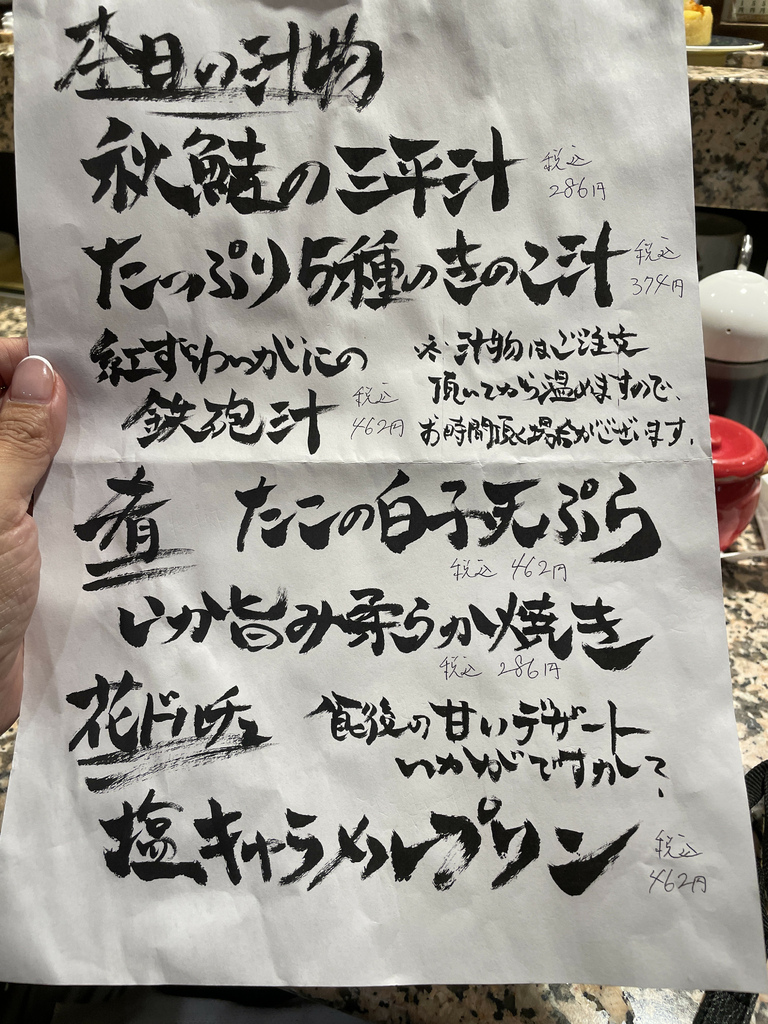 本日の汁物
秋鮭の三平汁 税込 286円
たっぷり5種のきのこ汁 税込 374円
紅ずわいがにの
鉄砲汁 税込 462円
※汁物はご注文
頂いてから温めますので、
お時間頂く場合がございます。
肴 たこの白子天ぷら
税込 462円
いか旨み柔らか焼き
税込 286円
花ドルチェ 食後の甘いデザート
いかがですかして?
塩キャラメルプリン 税込 462円